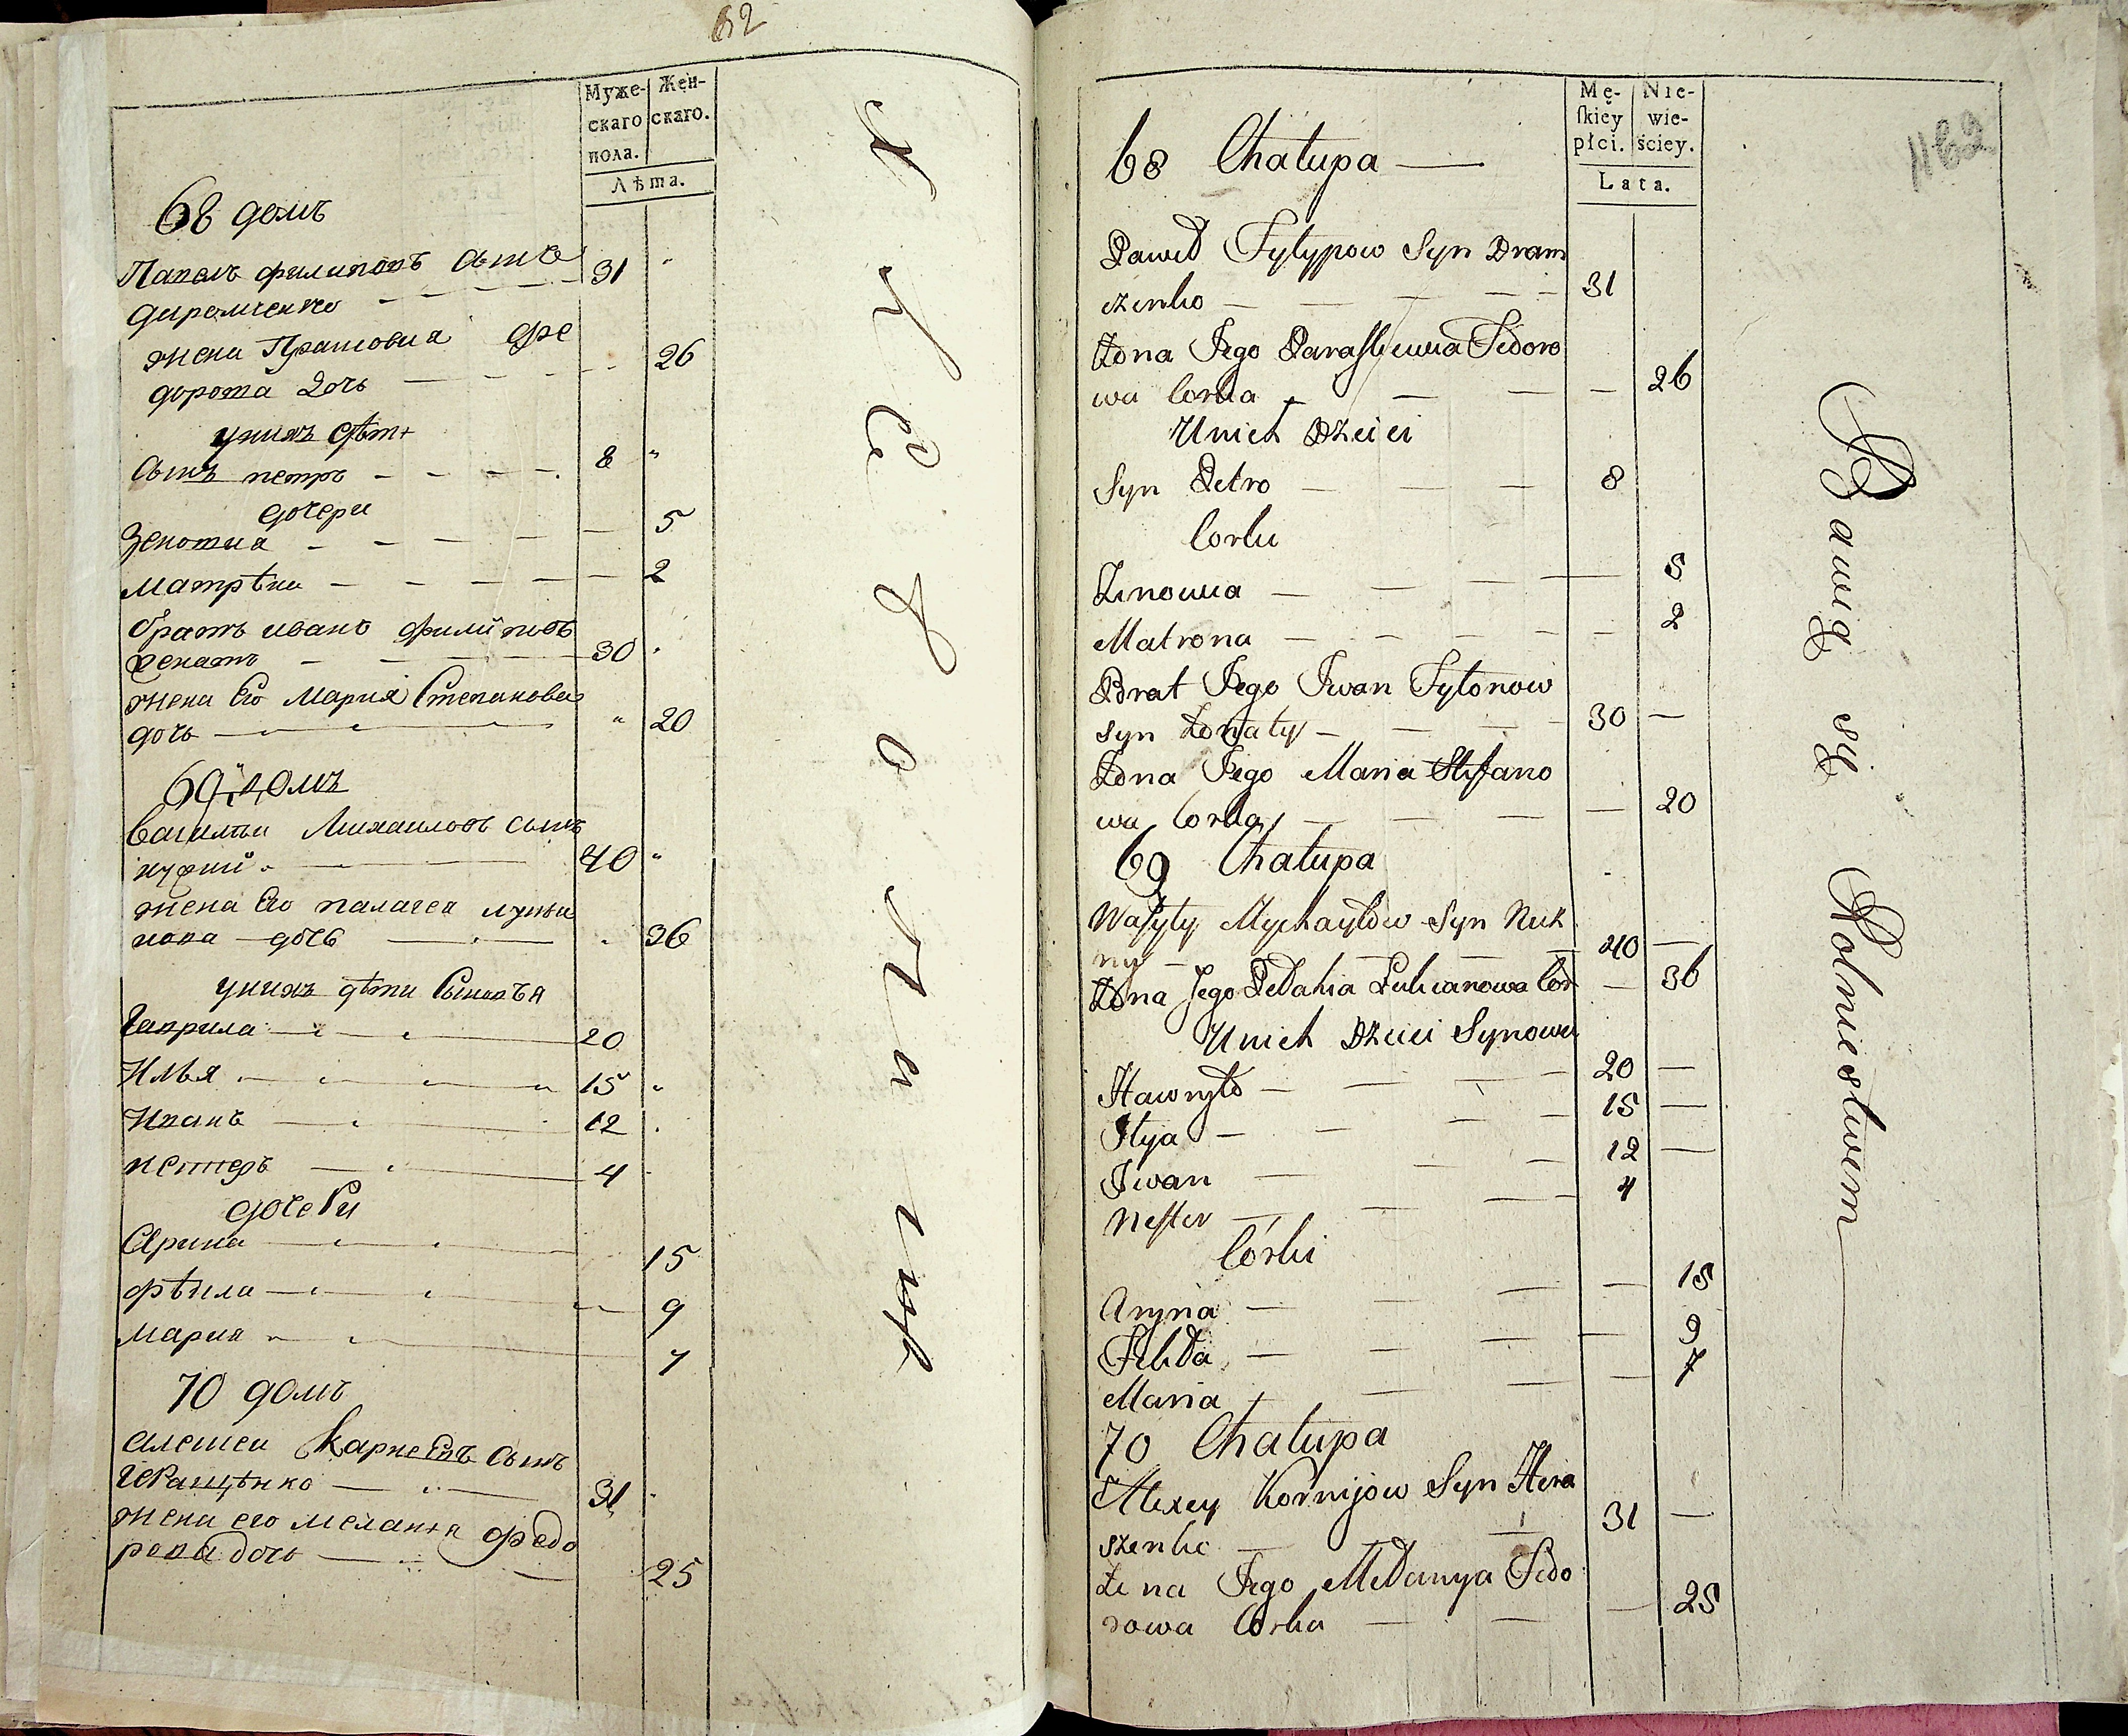 62
Муже-
скаго
пола.
Жен-
скаго.
Лѣта.
68 домъ
филиповъ сынъ
31
жена
26
дорота дочь
у нихъ дѣти
сынъ петръ 8
дочери
5
матрѣна 2
братъ иванъ филиповъ
женатъ 30
жена Его Мария Степанова
дочь 20
69 домъ
василии Михаиловъ сынъ
40
жена Его палагея
дочь 36
у нихъ дѣти Сыновья
Гаврила 20
Илья 15
Иванъ 12
нестеръ 4
дочеРи
Арина 15
9
Мария 7
70 домъ
алексеи КарнеЕвъ сынъ
31
жена его меланья Федо
рова дочь 25
1162
Mę-
skiey
płci.
Nie-
wie-
ściey.
Lata.
68 Chałupa
Paweł Fylypow Syn Dram
czenko 31
Żona Jego Paraskiewia Fedoro
wa Corka 26
U nich Dzieci
Syn Petro 8
Corki
Zinowia 5
Matrona 2
Brat Jego Iwan Fylonow
syn Żonaty 30
Żona Jego Maria Stefano
wa Corka 20
69 Chałupa
Wasyly Mychayłow Syn Kuk
ny 40
Żona Jego Pelahia Łukianowa Cor 36
U nich Dzieci Synowie
Hawryło 20
Ilya 15
Iwan 12
Nester 4
Córki
Aryna 15
Fekła 9
Maria 7
70 Chałupa
Alexey Kornijow Syn Hera
szenko 31
Żena Jego Mełanya Fedo
rowa Corka 25
Bawią się Rolniestwem